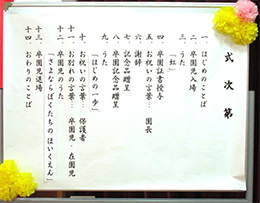 式次第
一、はじめのことば
二、卒園児入場
三、うた
「虹」
四、卒園証書授与
五、お祝いの言葉… 園長
六、謝辞
七、記念品贈呈
八、卒園記念品贈呈
九、うた
「はじめの一歩」
十、お祝いの言葉… 保護者
十一、お別れの言葉… 卒園児・在園児
十二、卒園児のうた
「さよならぼくたちのほいくえん」
十三、卒園児退場
十四、おわりのことば